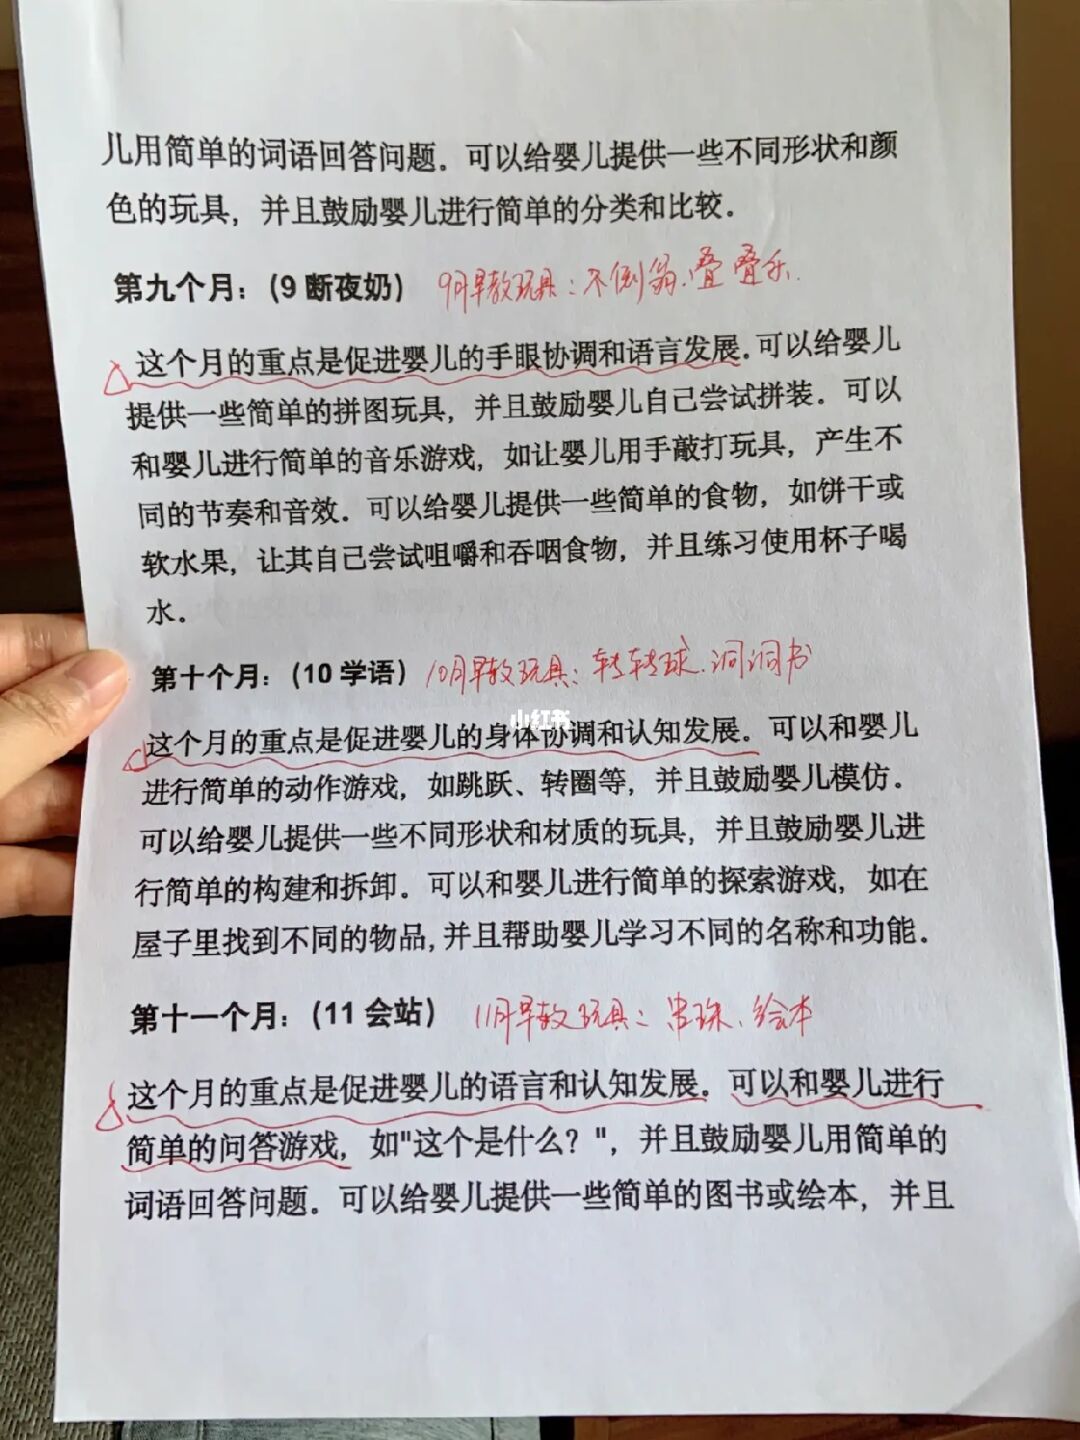 儿用简单的词语回答问题。可以给婴儿提供一些不同形状和颜
色的玩具，并且鼓励婴儿进行简单的分类和比较。
第九个月：(9 断夜奶) 9月早教玩具：不倒翁、叠叠乐.
这个月的重点是促进婴儿的手眼协调和语言发展。可以给婴儿
提供一些简单的拼图玩具，并且鼓励婴儿自己尝试拼装。可以
和婴儿进行简单的音乐游戏，如让婴儿用手敲打玩具，产生不
同的节奏和音效。可以给婴儿提供一些简单的食物，如饼干或
软水果，让其自己尝试咀嚼和吞咽食物，并且练习使用杯子喝
水。
第十个月：(10 学语) 10月早教玩具：转转球、洞洞书
小红书
这个月的重点是促进婴儿的身体协调和认知发展。可以和婴儿
进行简单的动作游戏，如跳跃、转圈等，并且鼓励婴儿模仿。
可以给婴儿提供一些不同形状和材质的玩具，并且鼓励婴儿进
行简单的构建和拆卸。可以和婴儿进行简单的探索游戏，如在
屋子里找到不同的物品,并且帮助婴儿学习不同的名称和功能。
第十一个月：(11 会站) 11月早教玩具：串珠、绘本
这个月的重点是促进婴儿的语言和认知发展。可以和婴儿进行
简单的问答游戏，如"这个是什么？"，并且鼓励婴儿用简单的
词语回答问题。可以给婴儿提供一些简单的图书或绘本，并且